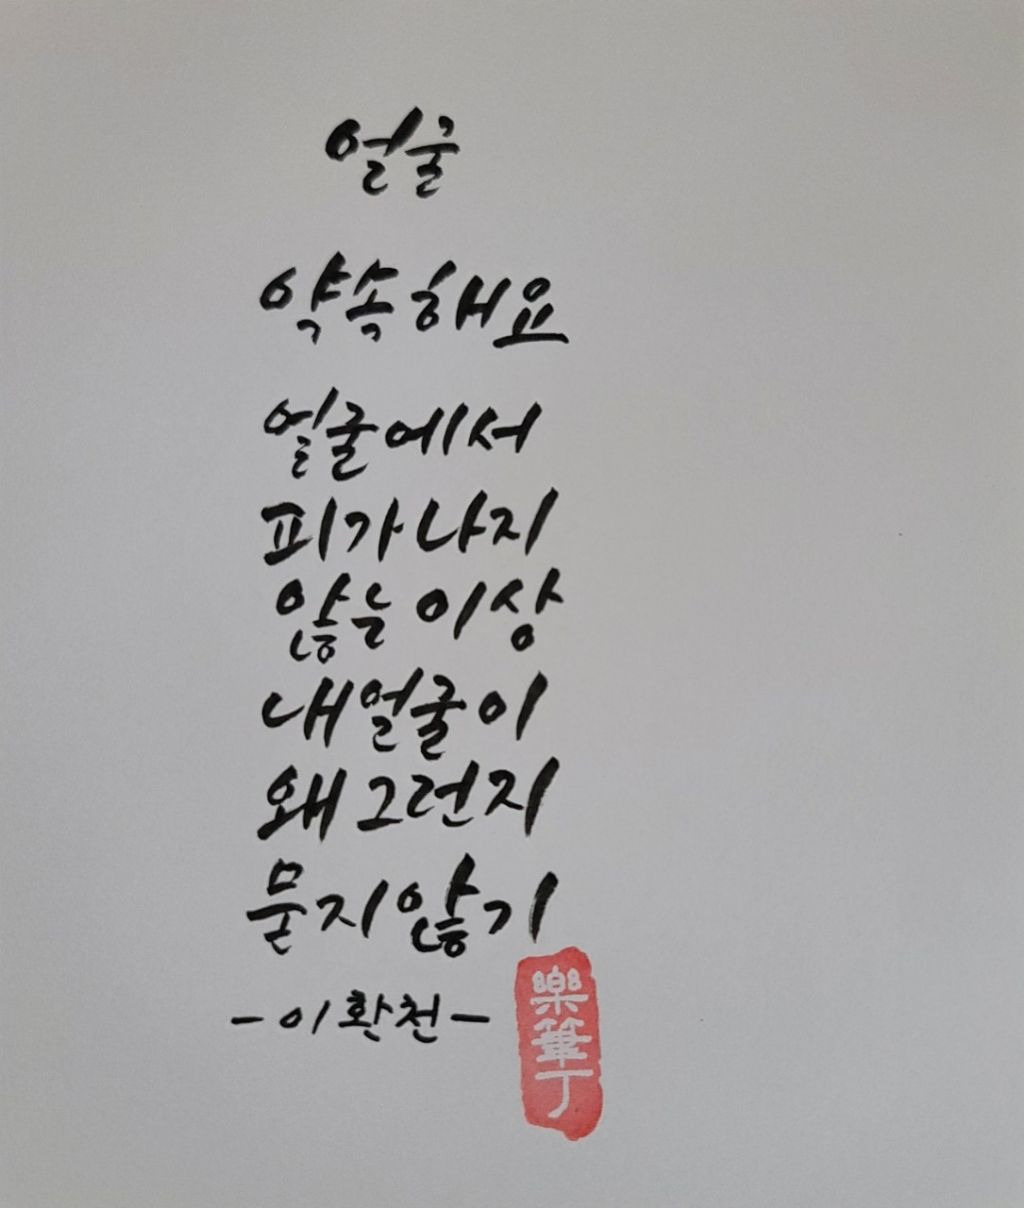 얼굴
약속해요
얼굴에서
피가 나지
않는 이상
내 얼굴이
왜 그런지
묻지 않기
-이환천-
樂筆丁